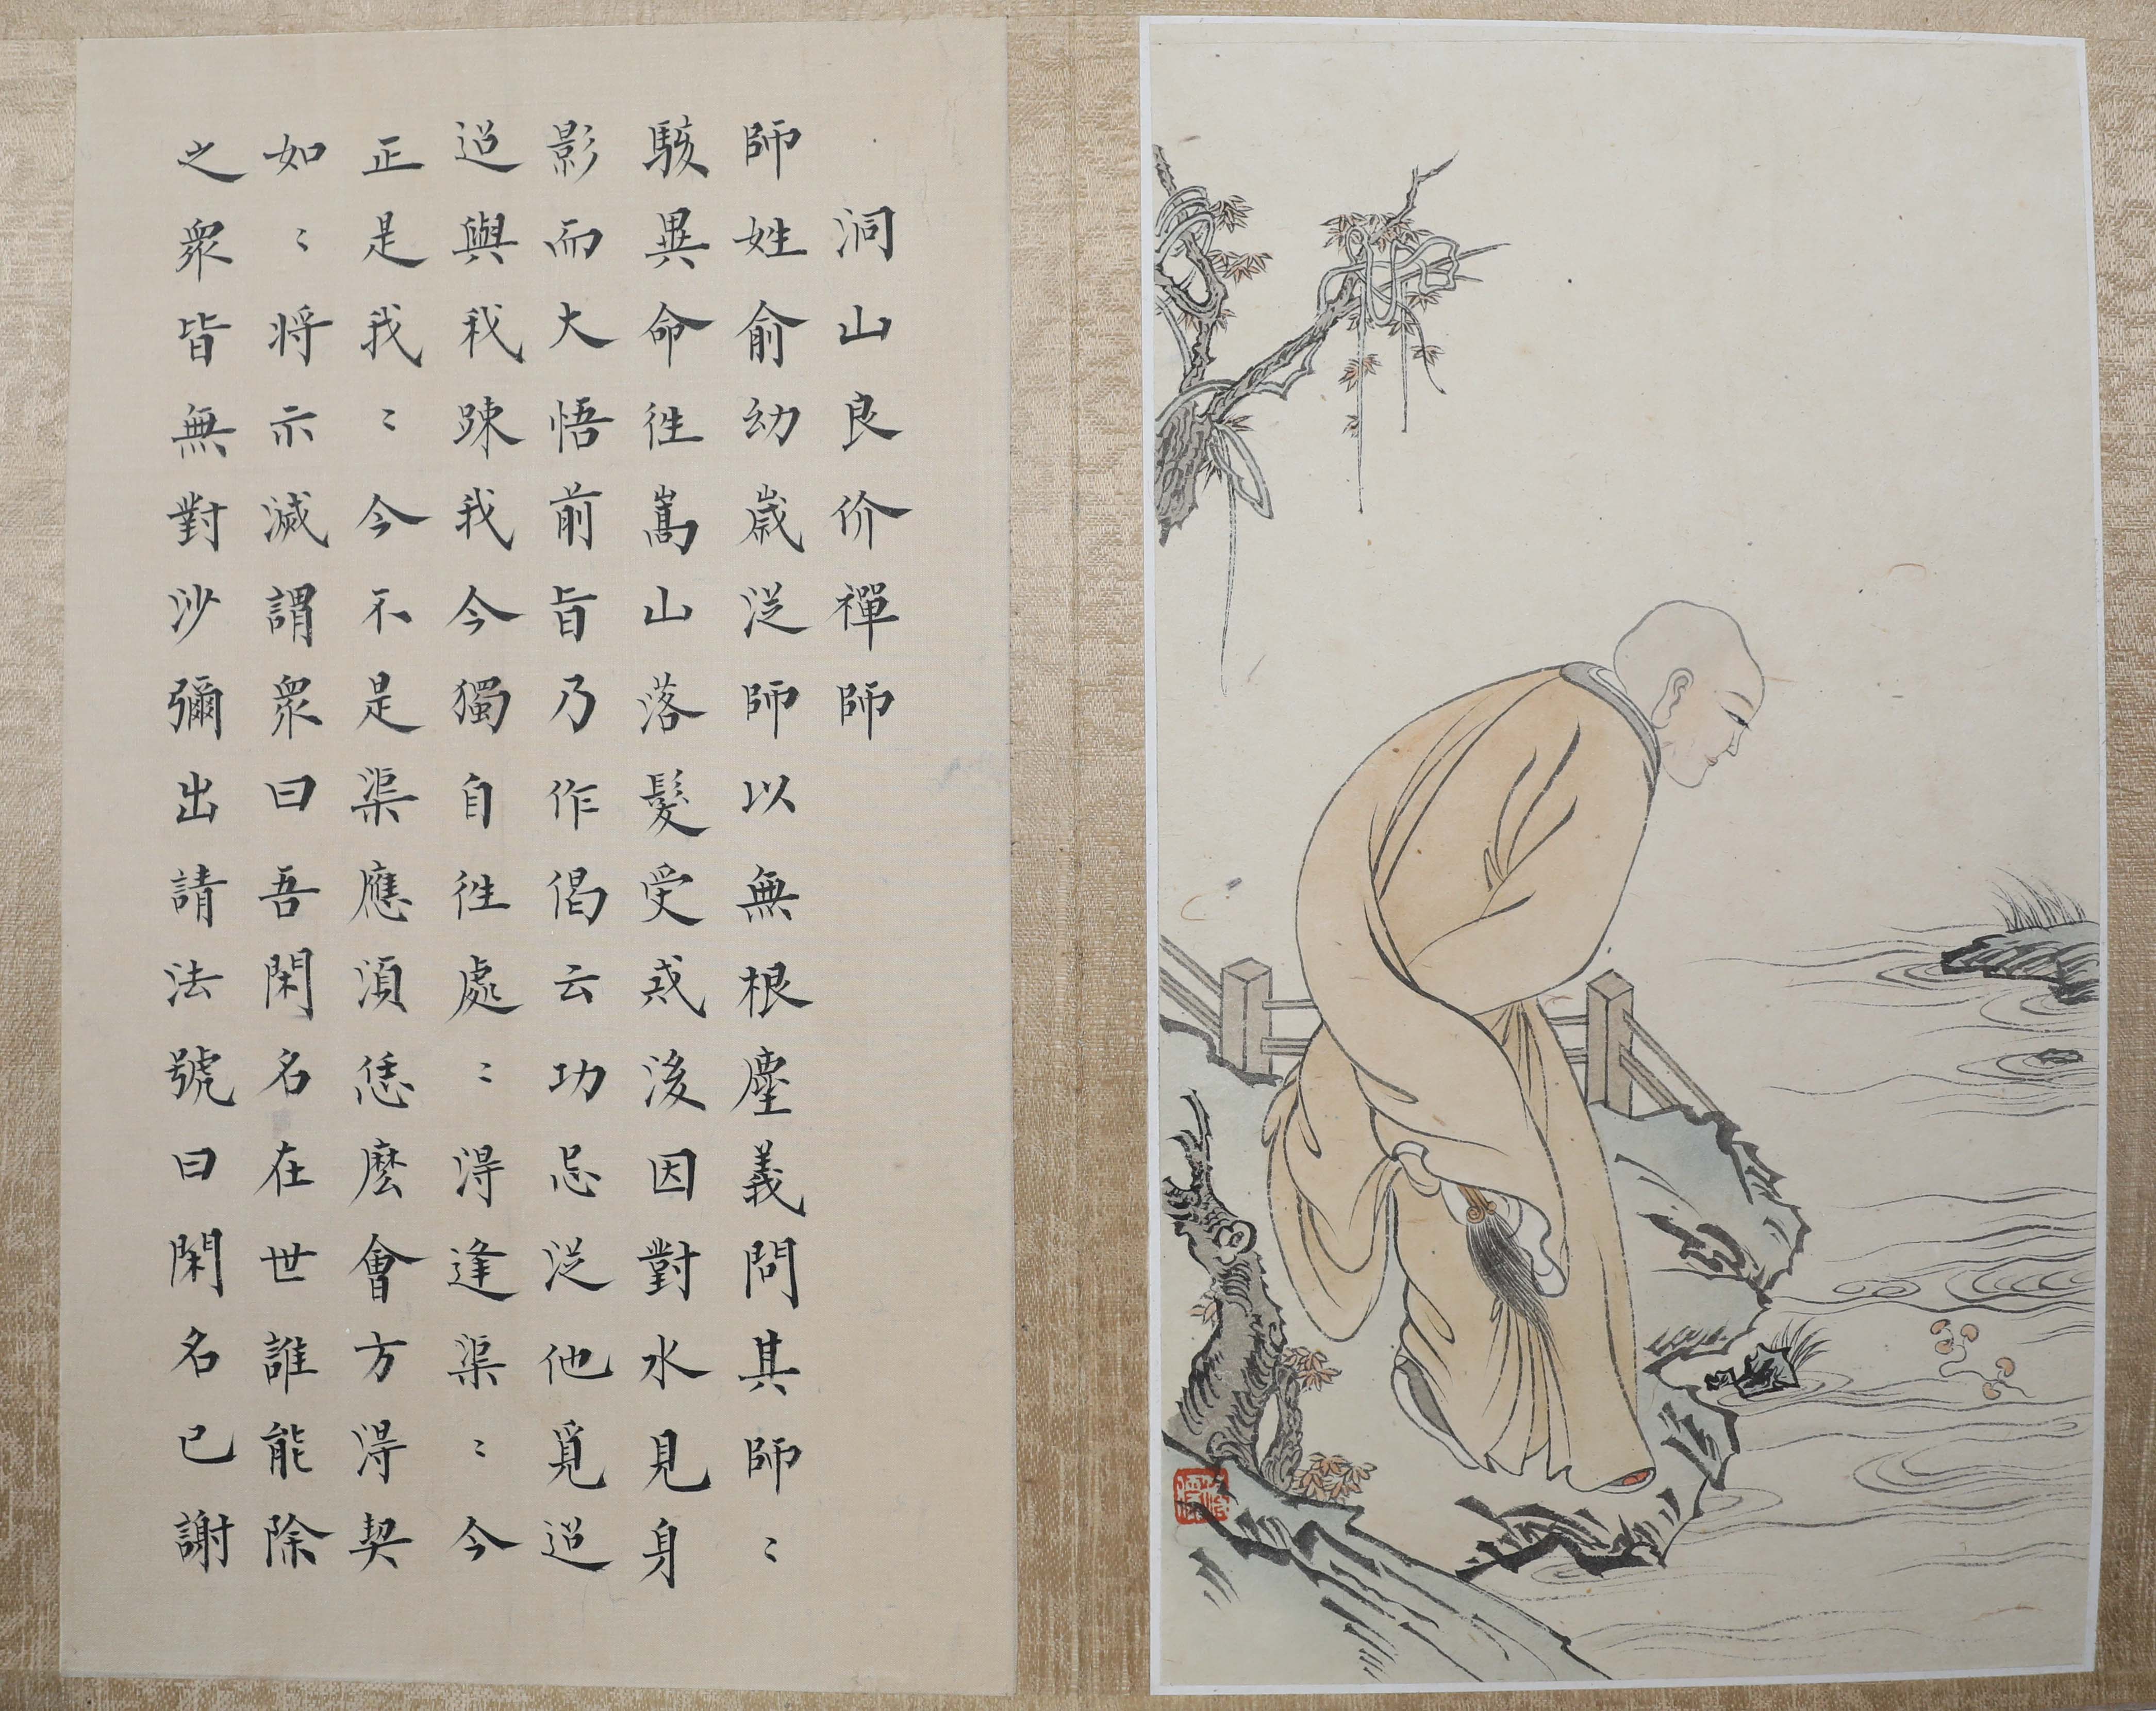 洞山良价禪師
師姓俞幼歲從師以無根塵義問其師〻
駭異命往嵩山落髮受戒後因對水見身
影而大悟前旨乃作偈云功忌從他覓迢
迢與我踈我今獨自往處〻得逢渠〻今
正是我〻今不是渠應須恁麼會方得契
如〻將示滅謂眾曰吾閑名在世誰能除
之眾皆無對沙彌出請法號曰閑名已謝